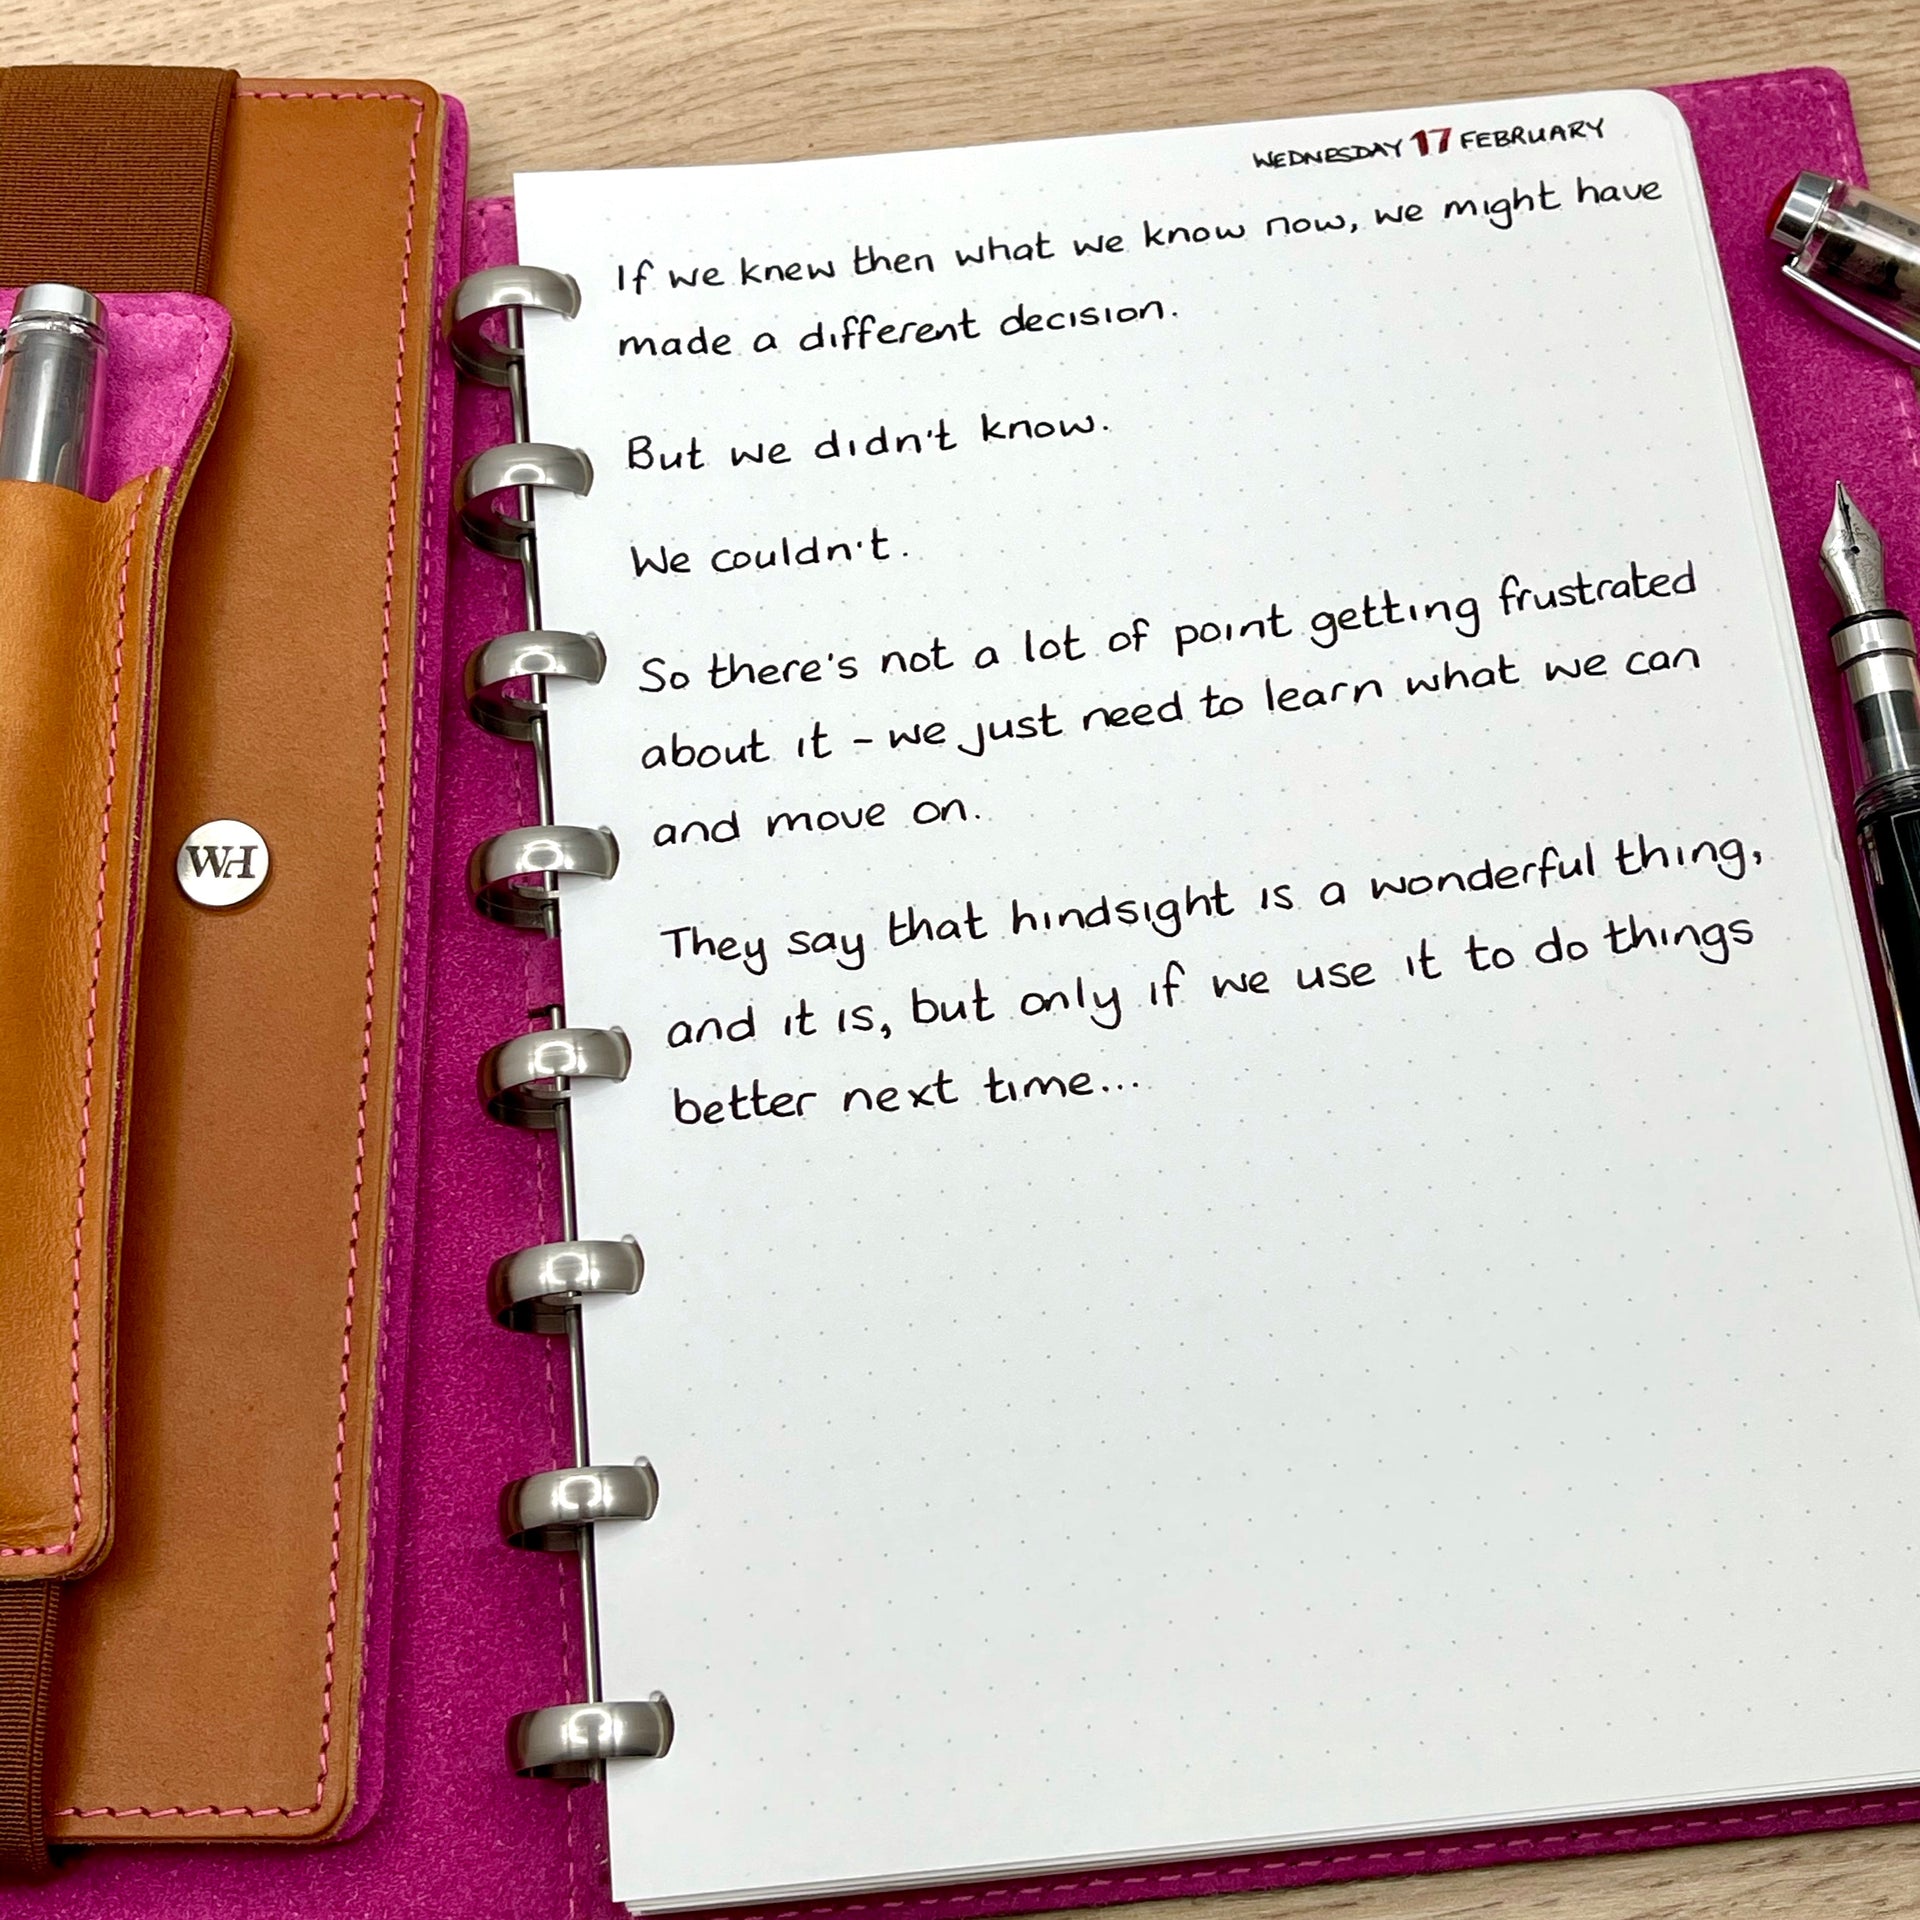 WEDNESDAY 17 FEBRUARY
If we knew then what we know now, we might have
made a different decision.
But we didn't know.
We couldn't.
So there's not a lot of point getting frustrated
about it - we just need to learn what we can
and move on.
They say that hindsight is a wonderful thing,
and it is, but only if we use it to do things
better next time...
WH